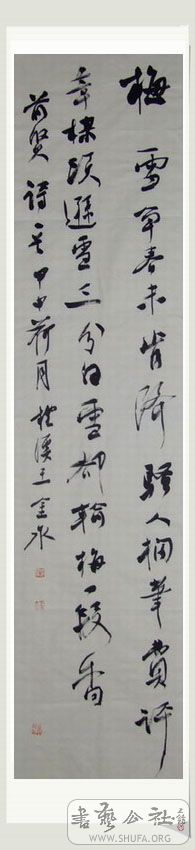 梅雪争春未肯降骚人搁筆費评
章梅須遜雪三分白雪却輸梅一段香
前贤詩甲申荷月王金水
書藝公社
WWW.SHUFA.ORG